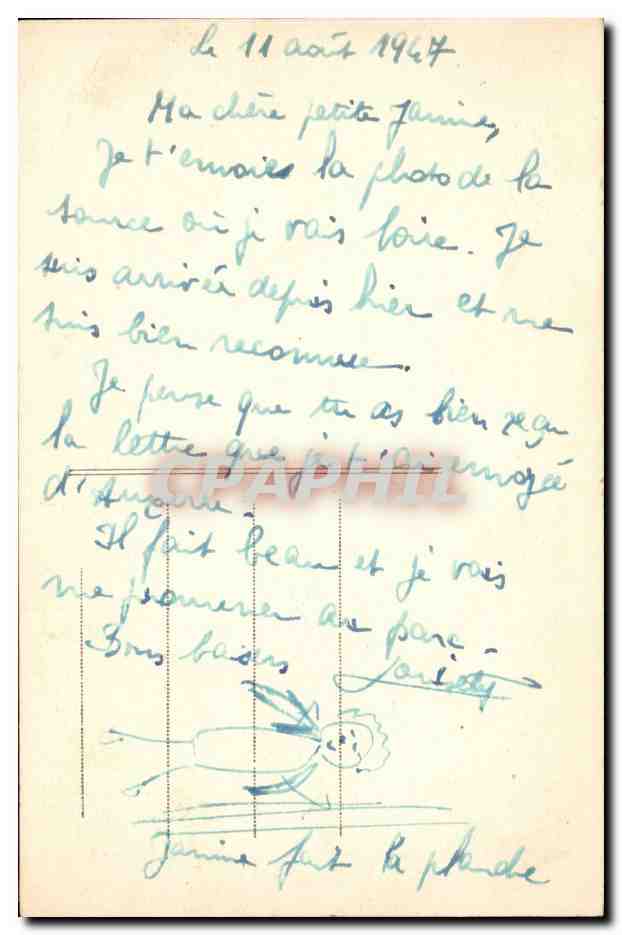 Le 11 août 1947
Ma chère petite Janine,
Je t'envoies la photo de la
source où je vais boire. Je
suis arrivée depuis hier et me
suis bien reconnue.
Je pense que tu as bien reçu
la lettre que je t'ai envoyée
d'Auxerre.
CPAPHIL
Il fait beau et je vais
me promener au parc.
Bons baisers
Janine fait la planche